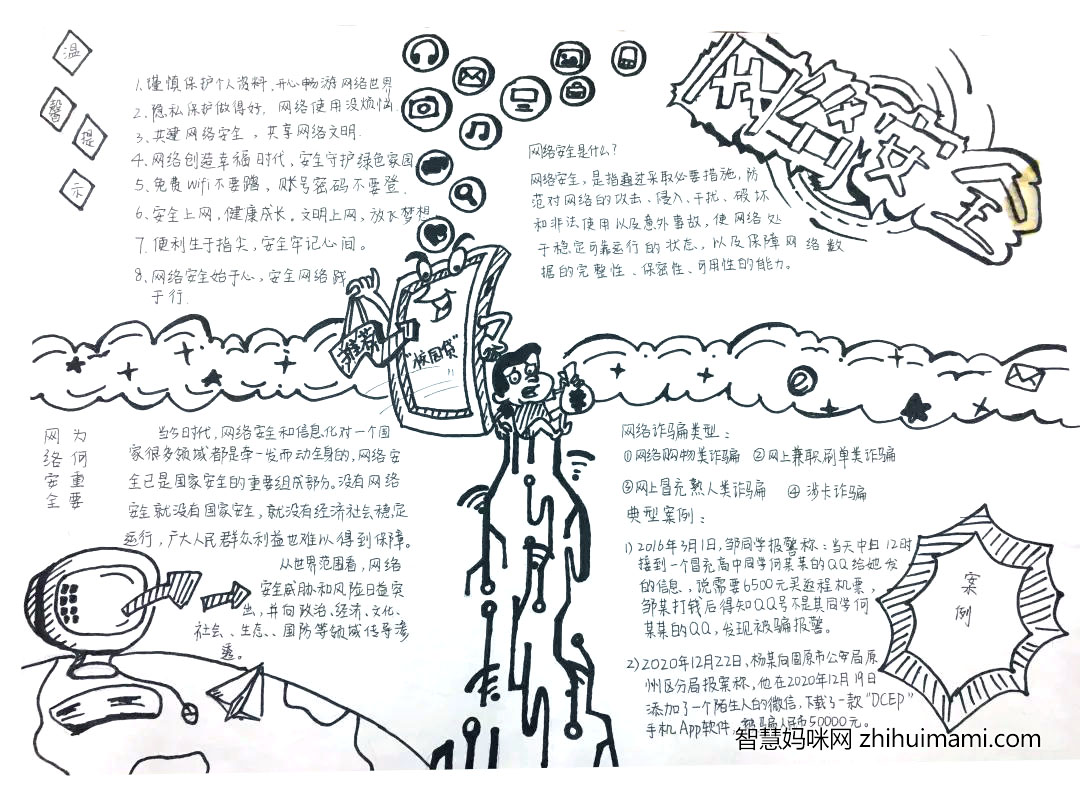 温
馨
提
示
1.谨慎保护个人资料、开心畅游网络世界
2.隐私保护做得好,网络使用没烦恼
3、共建网络安全,共享网络文明.
4.网络创造幸福时代,安全守护绿色家园
5、免费Wifi不要蹭,账号密码不要登.
6、安全上网,健康成长。文明上网,放飞梦想
7、便利生于指尖,安全牢记心间。
8、网络安全始于心,安全网络践
于行.
网络安全
网络安全是什么?
网络安全,是指通过采取必要措施,防
范对网络的攻击、侵入、干扰、破坏
和非法使用以及意外事故,使网络处
于稳定可靠运行的状态,以及保障网络数
据的完整性、保密性、可用性的能力。
推荐
"校园贷"
为何重要
网络安全
当今时代,网络安全和信息化对一个国
家很多领域都是牵一发而动全身的,网络安
全已是国家安全的重要组成部分。没有网络
安全就没有国家安全,就没有经济社会稳定
运行,广大人民群众利益也难以得到保障。
从世界范围看,网络
安全威胁和风险日益突
出,并向政治、经济、文化、
社会、生态、国防等领域传导渗
透。
网络诈骗类型:
①网络购物类诈骗 ②网上兼职刷单类诈骗
③网上冒充熟人类诈骗 ④涉卡诈骗
典型案例:
1)2016年3月1日,邹同学报警称:当天中午12时
接到一个冒充高中同学何某某的QQ给她发
的信息,说需要6500元买返程机票,
邹某打钱后得知QQ号不是其同学何
某某的QQ,发现被骗报警。
2)2020年12月22日,杨某向固原市公安局原
州区分局报案称,他在2020年12月19日
添加了一个陌生人的微信,下载了一款"DCEP"
手机App软件,被骗人民币50000元。
案例
智慧妈咪网 zhihuimami.com